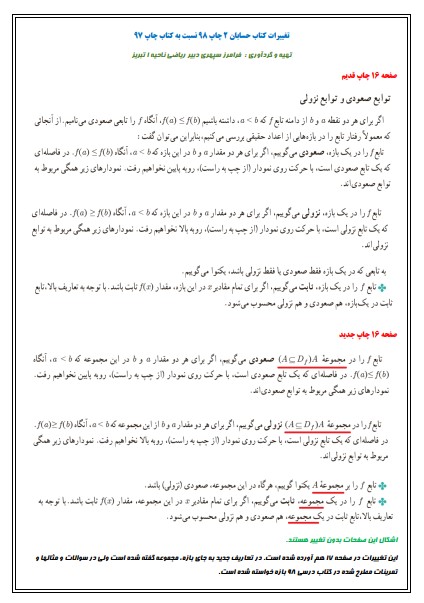 تغییرات کتاب حسابان ۲ چاپ ۹۸ نسبت به کتاب چاپ ۹۷
تهیه و گردآوری : فرامرز سپهری دبیر ریاضی ناحیه ۱ تبریز
صفحه ۱۶ چاپ قدیم
توابع صعودی و توابع نزولی
اگر برای هر دو نقطه a و b از دامنه تابع f که a < b، داشته باشیم f(a) ≤ f(b)، آنگاه f را تابعی صعودی می‌نامیم. از آنجائی
که معمولاً رفتار تابع را در بازه‌هایی از اعداد حقیقی بررسی می‌کنیم، بنابراین می‌توان گفت :
تابع f را در یک بازه، صعودی می‌گوییم، اگر برای هر دو مقدار a و b در این بازه که a < b، آنگاه f(a) ≤ f(b). در فاصله‌ای
که یک تابع صعودی است، با حرکت روی نمودار (از چپ به راست)، رو به پایین نخواهیم رفت. نمودارهای زیر همگی مربوط به
توابع صعودی‌اند.
تابع f را در یک بازه، نزولی می‌گوییم، اگر برای هر دو مقدار a و b در این بازه که a < b، آنگاه f(a) ≥ f(b). در فاصله‌ای
که یک تابع نزولی است، با حرکت روی نمودار (از چپ به راست)، رو به بالا نخواهیم رفت. نمودارهای زیر همگی مربوط به توابع
نزولی‌اند.
به تابعی که در یک بازه فقط صعودی یا فقط نزولی باشد، یکنوا می‌گوییم.
تابع f را در یک بازه، ثابت می‌گوییم، اگر برای تمام مقادیر x در این بازه، مقدار f(x) ثابت باشد. با توجه به تعاریف بالا، تابع
ثابت در یک بازه، هم صعودی و هم نزولی محسوب می‌شود.
صفحه ۱۶ چاپ جدید
تابع f را در مجموعهٔ A (A ⊆ D_f) صعودی می‌گوییم، اگر برای هر دو مقدار a و b در این مجموعه که a < b، آنگاه
f(a) ≤ f(b). در فاصله‌ای که یک تابع صعودی است، با حرکت روی نمودار (از چپ به راست)، رو به پایین نخواهیم رفت.
نمودارهای زیر همگی مربوط به توابع صعودی‌اند.
تابع f را در مجموعهٔ A (A ⊆ D_f) نزولی می‌گوییم، اگر برای هر دو مقدار a و b از این مجموعه که a < b، آنگاه f(a) ≥ f(b).
در فاصله‌ای که یک تابع نزولی است، با حرکت روی نمودار (از چپ به راست)، رو به بالا نخواهیم رفت. نمودارهای زیر همگی
مربوط به توابع نزولی‌اند.
تابع f را بر مجموعهٔ A یکنوا گوییم، هرگاه در این مجموعه، صعودی (نزولی) باشد.
تابع f را در یک مجموعه، ثابت می‌گوییم، اگر برای تمام مقادیر x در این مجموعه، مقدار f(x) ثابت باشد. با توجه به
تعاریف بالا، تابع ثابت در یک مجموعه، هم صعودی و هم نزولی محسوب می‌شود.
اشکال این صفحات بدون تغییر هستند.
این تغییرات در صفحه ۱۷ هم آورده شده است. در تعاریف جدید به جای بازه، مجموعه گفته شده است ولی در سوالات و مثالها و
تمرینات مطرح شده در کتاب درسی ۹۸ بازه خواسته شده است.